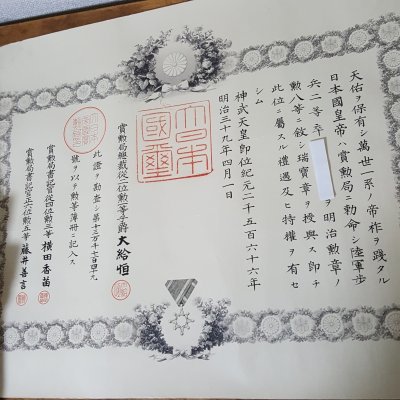 天佑ヲ保有シ萬世一系ノ帝祚ヲ踐タル
日本國皇帝ハ賞勲局ニ勅命シ陸軍步
兵二等卒
ヲ明治勲章ノ
勲八等ニ敘シ瑞寶章ヲ授與ス即チ
此位ニ屬スル禮遇及ヒ特權ヲ有セ
シム
神武天皇即位紀元二千五百六十六年
明治三十九年四月一日
大日本國璽
賞勲局總裁從二位勲一等子爵大給恒
此證ヲ勘査シ第
號ヲ以テ勲等簿冊ニ記入ス
賞勲局書記官從四位勲三等橫田香苗
賞勲局書記官正六位勲五等藤井善言